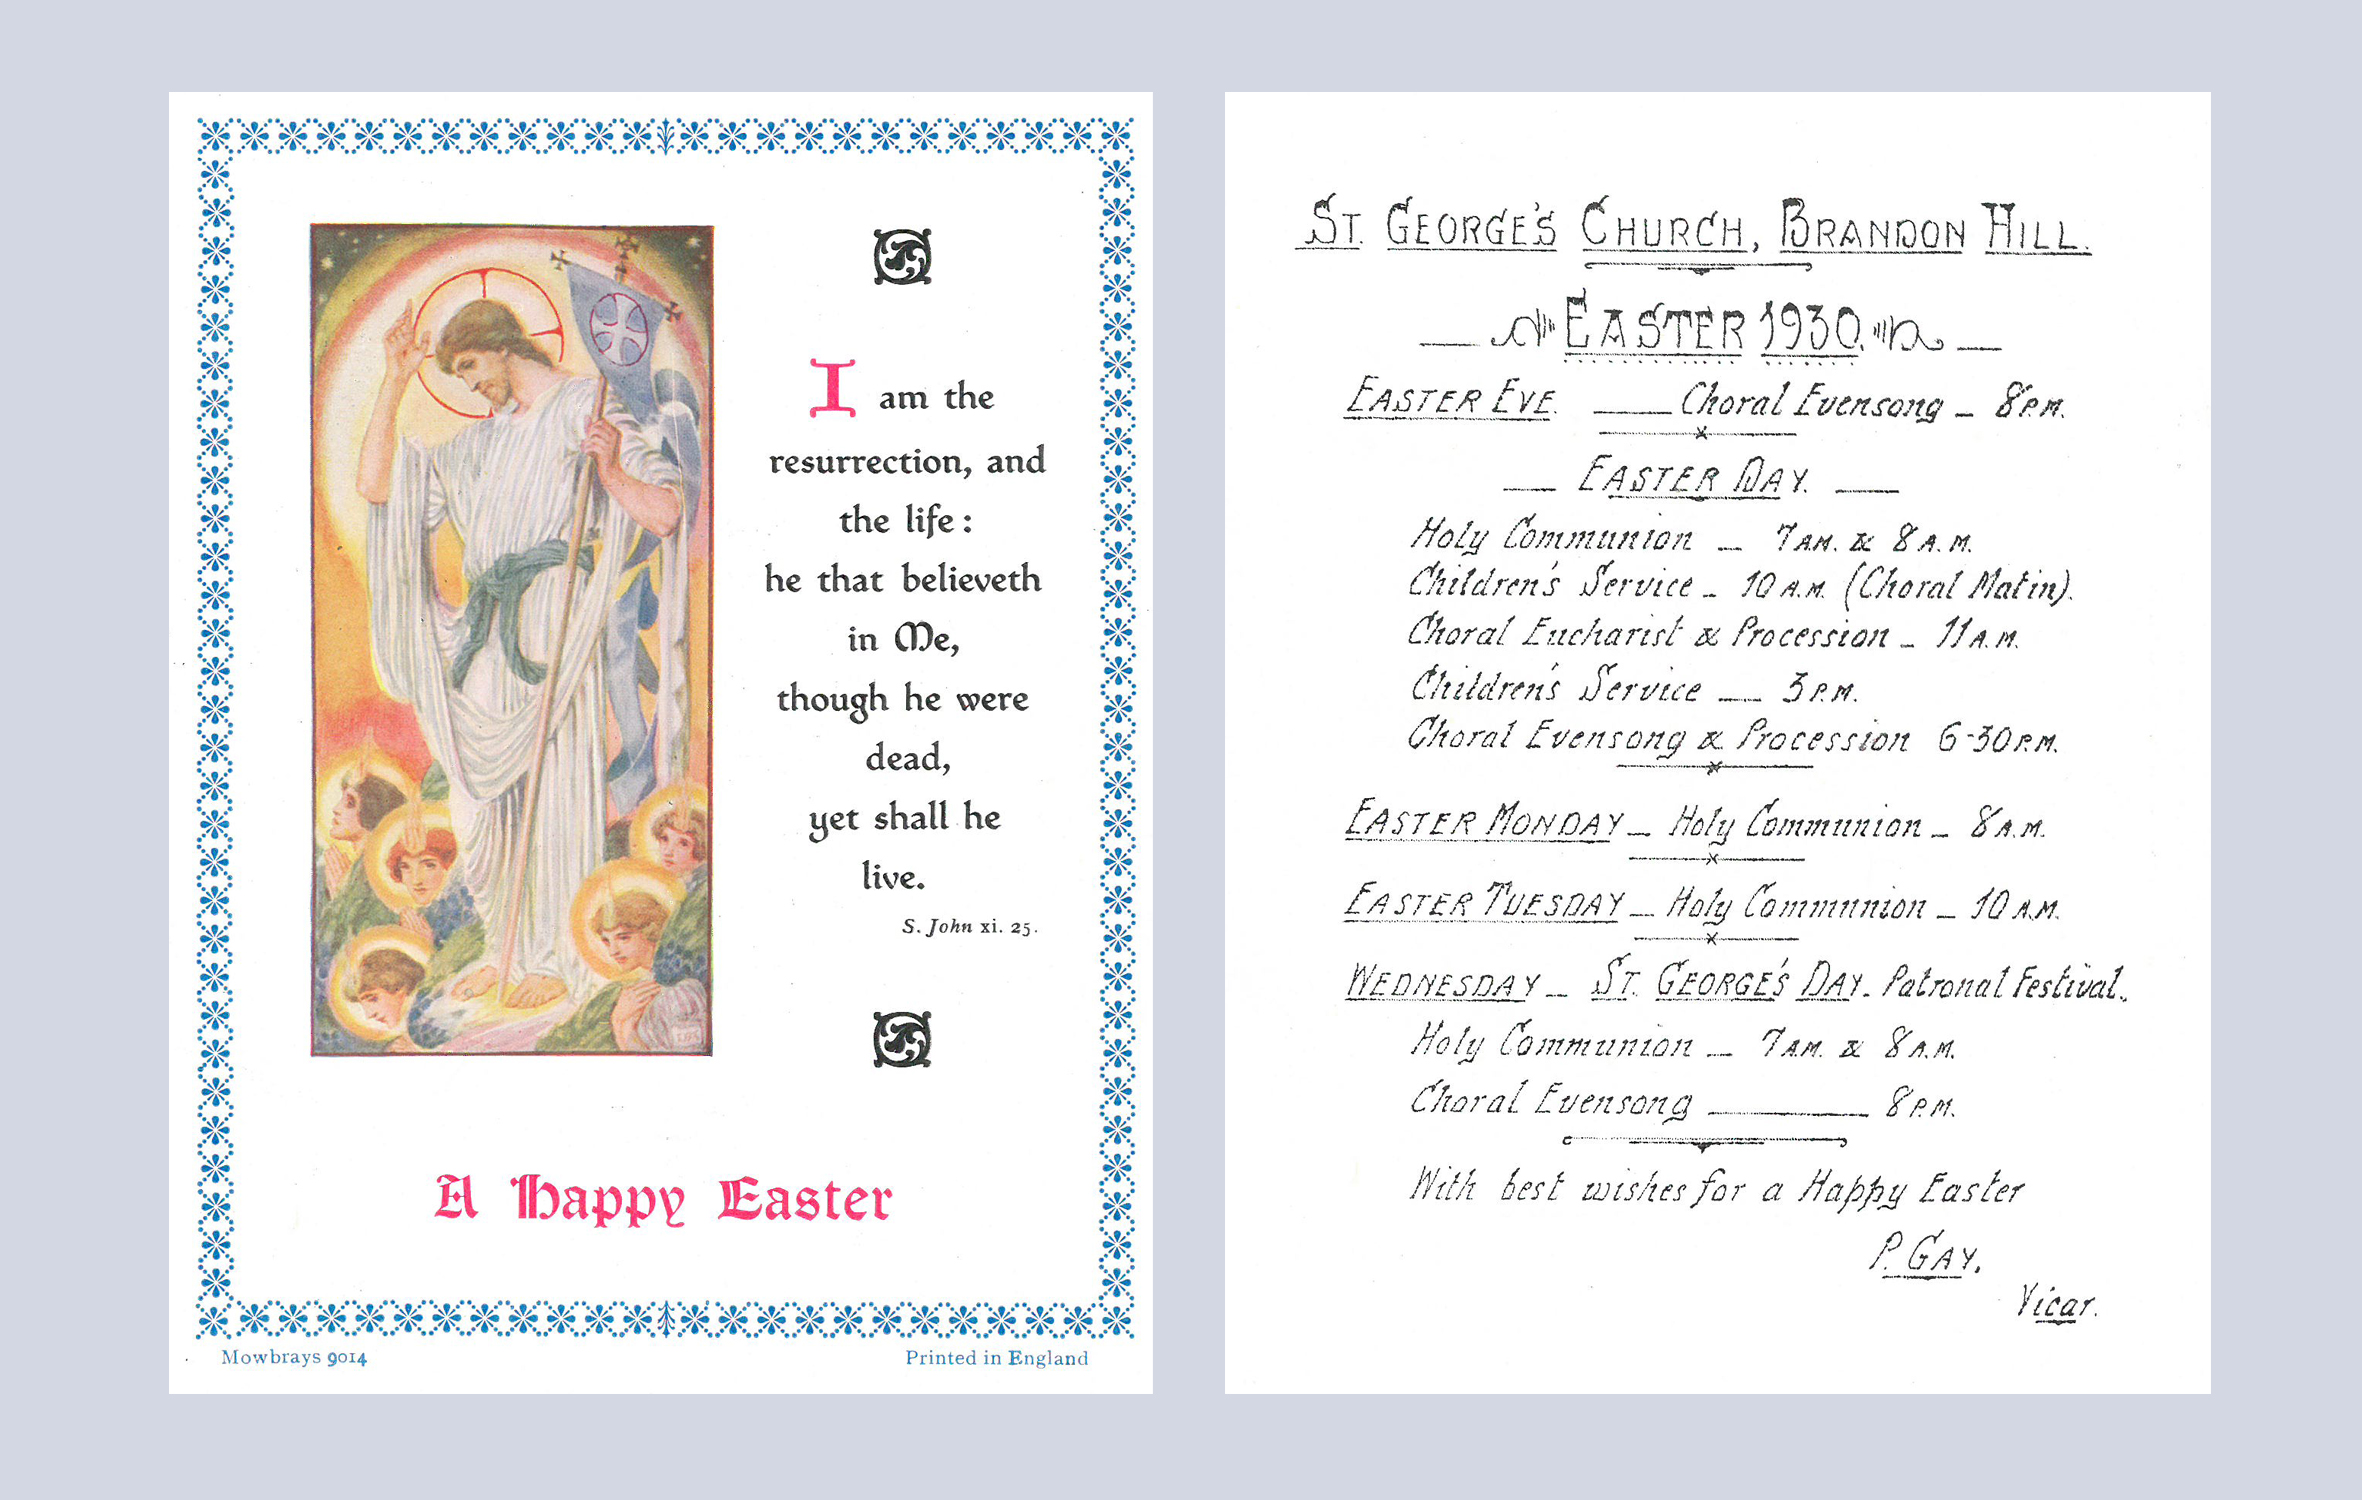 I am the
resurrection, and
the life :
he that believeth
in Me,
though he were
dead,
yet shall he
live.
S. John xi. 25.
A Happy Easter
Mowbrays 9014
Printed in England
ST. GEORGE'S CHURCH, BRANDON HILL.
EASTER 1930.
EASTER EVE. — Choral Evensong — 8 P.M.
— EASTER DAY. —
Holy Communion — 7 A.M. & 8 A.M.
Children's Service — 10 A.M. (Choral Matin).
Choral Eucharist & Procession — 11 A.M.
Children's Service — 3 P.M.
Choral Evensong & Procession 6-30 P.M.
EASTER MONDAY — Holy Communion — 8 A.M.
EASTER TUESDAY — Holy Communion — 10 A.M.
WEDNESDAY — ST. GEORGE'S DAY. Patronal Festival.
Holy Communion — 7 A.M. & 8 A.M.
Choral Evensong — 8 P.M.
With best wishes for a Happy Easter
P. GAY.
Vicar.